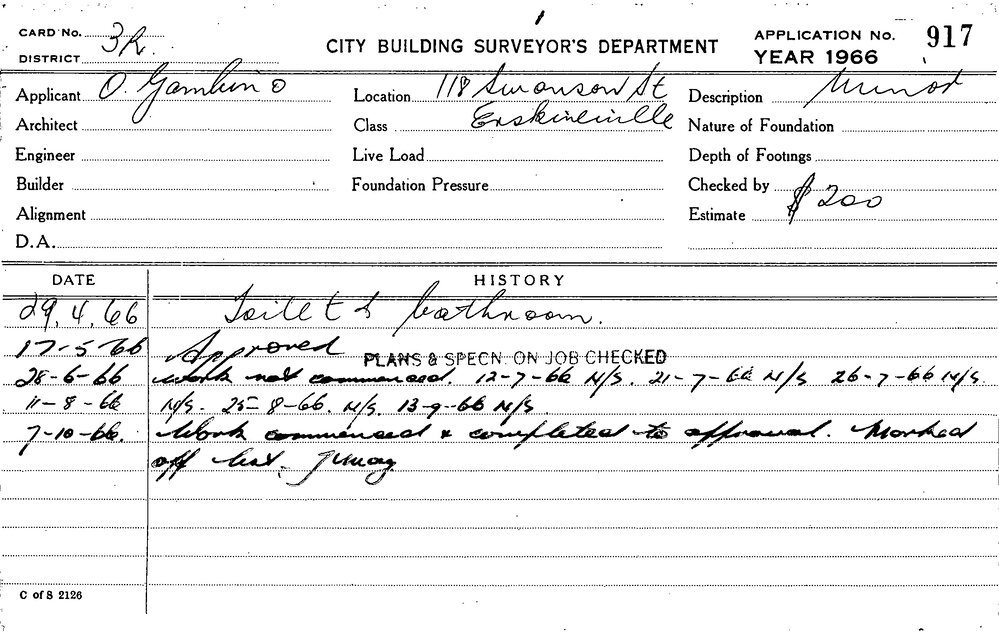 CARD No. 3R.
DISTRICT
CITY BUILDING SURVEYOR'S DEPARTMENT
APPLICATION No. 917
YEAR 1966
Applicant O. Gambino
Location 118 Swanson St
Description Minor
Architect
Class Erskineville
Nature of Foundation
Engineer
Live Load
Depth of Footings
Builder
Foundation Pressure
Checked by
Alignment
Estimate $200
D.A.
DATE HISTORY
29.4.66 Toilet & bathroom.
17-5-66 Approved PLANS & SPECN. ON JOB CHECKED
28-6-66 Work not commenced. 12-7-66 N/S. 21-7-66 N/S 26-7-66 N/S.
11-8-66 N/S. 25-8-66. N/S. 13-9-66 N/S.
7-10-66. Work commenced & completed to approval. Marked
off list.
C of S 2126